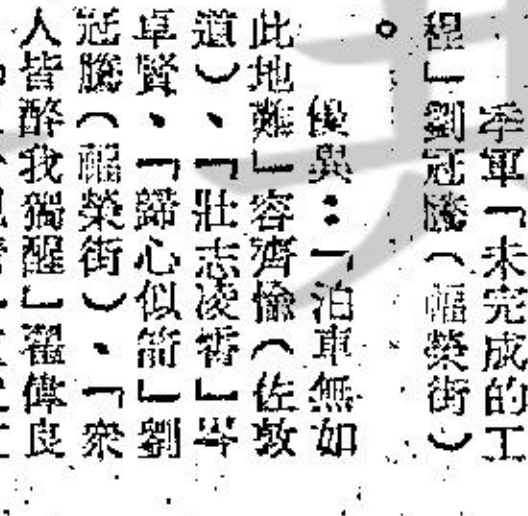 季軍「未完成的工
程」劉冠騰（福榮街）
。
優異：「泊車無如
此地難」容齊愉（佐敦
道）、「壯志凌霄」岑
卓賢、「歸心似箭」劉
冠騰（福榮街）、「衆
人皆醉我獨醒」翟偉良